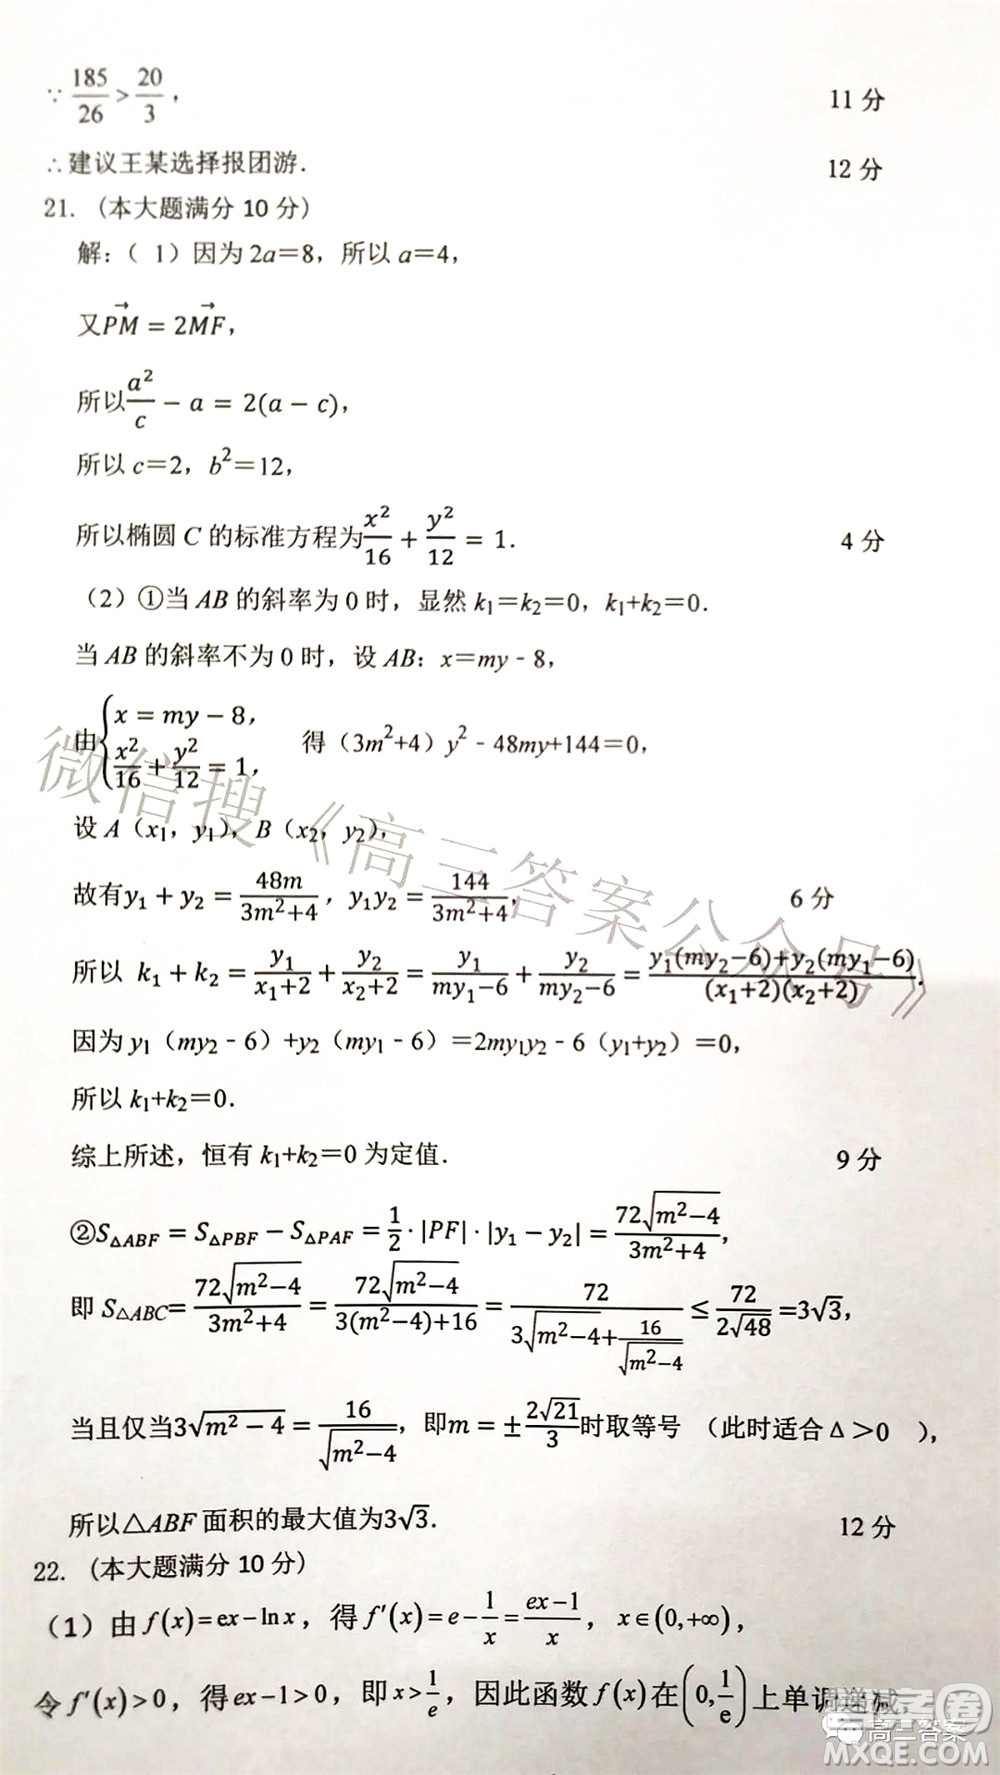 ∵ 185/26 > 20/3，　11 分
∴建议王某选择报团游．　12 分
21.（本大题满分 10 分）
解：（ 1）因为 2a＝8，所以 a＝4，
又PM⃗ = 2MF⃗，
所以a²/c − a = 2(a − c)，
所以 c＝2，b²＝12，
所以椭圆 C 的标准方程为x²/16 + y²/12 = 1．　4 分
（2）①当 AB 的斜率为 0 时，显然 k₁＝k₂＝0，k₁+k₂＝0．
当 AB 的斜率不为 0 时，设 AB：x＝my﹣8，
由{x = my − 8，x²/16 + y²/12 = 1，　得（3m²+4）y²﹣48my+144＝0，
设 A（x₁，y₁），B（x₂，y₂），
故有y₁ + y₂ = 48m/(3m²+4)，y₁y₂ = 144/(3m²+4)，　6 分
所以 k₁ + k₂ = y₁/(x₁+2) + y₂/(x₂+2) = y₁/(my₁−6) + y₂/(my₂−6) = (y₁(my₂−6)+y₂(my₁−6))/((x₁+2)(x₂+2))．
因为 y₁（my₂﹣6）+y₂（my₁﹣6）＝2my₁y₂﹣6（y₁+y₂）＝0，
所以 k₁+k₂＝0．
综上所述，恒有 k₁+k₂＝0 为定值．　9 分
②S△ABF = S△PBF − S△PAF = 1/2 · |PF| · |y₁ − y₂| = 72√(m²−4)/(3m²+4)，
即 S△ABC= 72√(m²−4)/(3m²+4) = 72√(m²−4)/(3(m²−4)+16) = 72/(3√(m²−4)+16/√(m²−4)) ≤ 72/(2√48) =3√3，
当且仅当3√(m² − 4) = 16/√(m²−4)，即m = ±2√21/3时取等号 （此时适合 △＞0 ），
所以△ABF 面积的最大值为3√3．　12 分
22.（本大题满分 10 分）
（1）由 f(x)=ex−lnx，得 f′(x)=e−1/x=(ex−1)/x，x∈(0,+∞)，
令 f′(x)>0，得 ex−1>0，即 x>1/e，因此函数 f(x) 在(0,1/e)上单调递减，
微信搜《高三答案公众号》
答案圈
高三答案
MXQE.COM